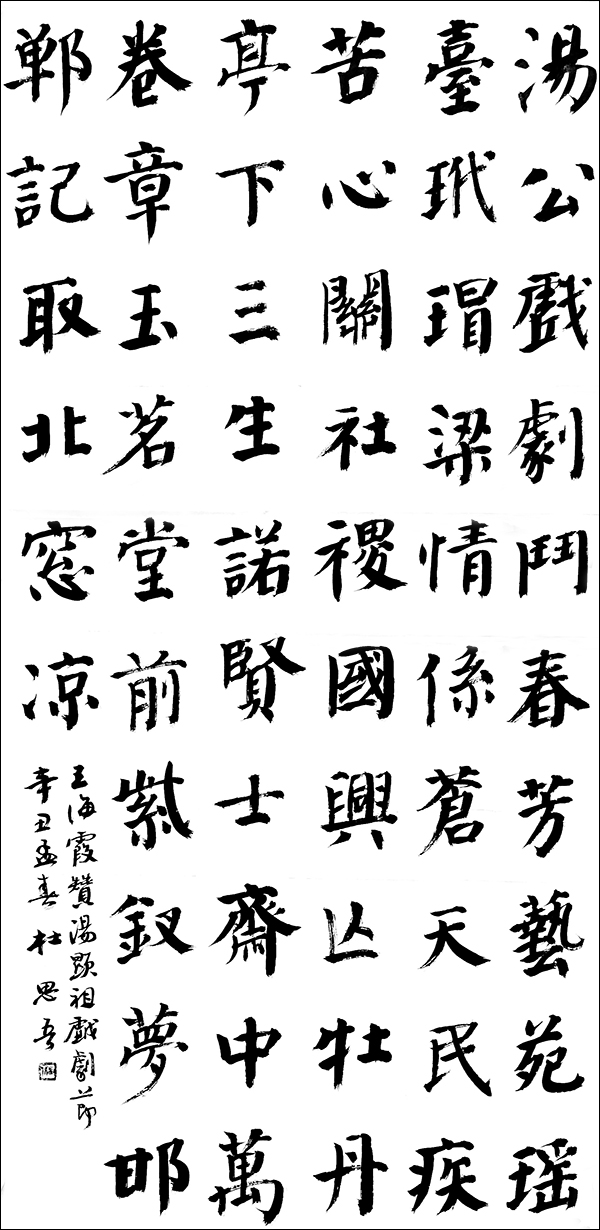 湯公戲劇鬥春芳藝苑瑶
臺玳瑁梁情係蒼天民疾
苦心關社稷國興亾牡丹
亭下三生諾賢士齋中萬
卷章玉茗堂前紫釵夢邯
郸記取北窓凉
王海霞贊湯顯祖戲劇節
辛丑孟春杜思吾